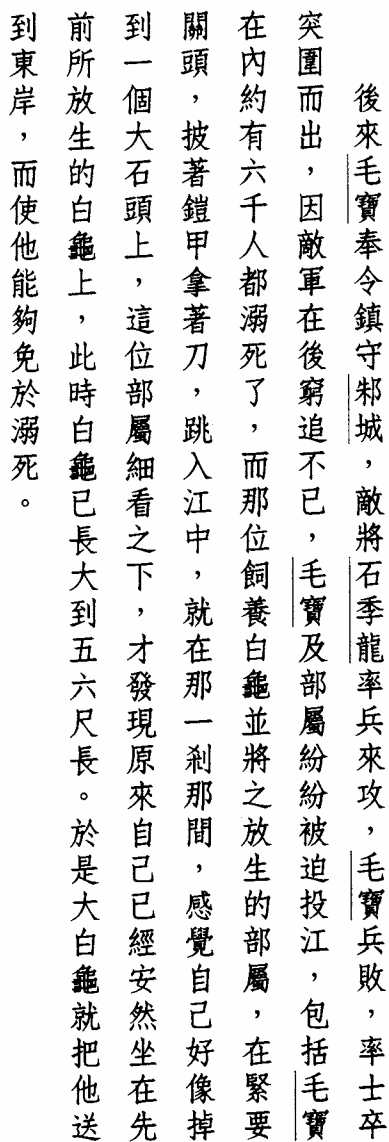 後來毛寶奉令鎮守邾城，敵將石季龍率兵來攻，毛寶兵敗，率士卒
突圍而出，因敵軍在後窮追不已，毛寶及部屬紛紛被迫投江，包括毛寶
在內約有六千人都溺死了，而那位飼養白龜並將之放生的部屬，在緊要
關頭，披著鎧甲拿著刀，跳入江中，就在那一剎那間，感覺自己好像掉
到一個大石頭上，這位部屬細看之下，才發現原來自己已經安然坐在先
前所放生的白龜上，此時白龜已長大到五六尺長。於是大白龜就把他送
到東岸，而使他能夠免於溺死。